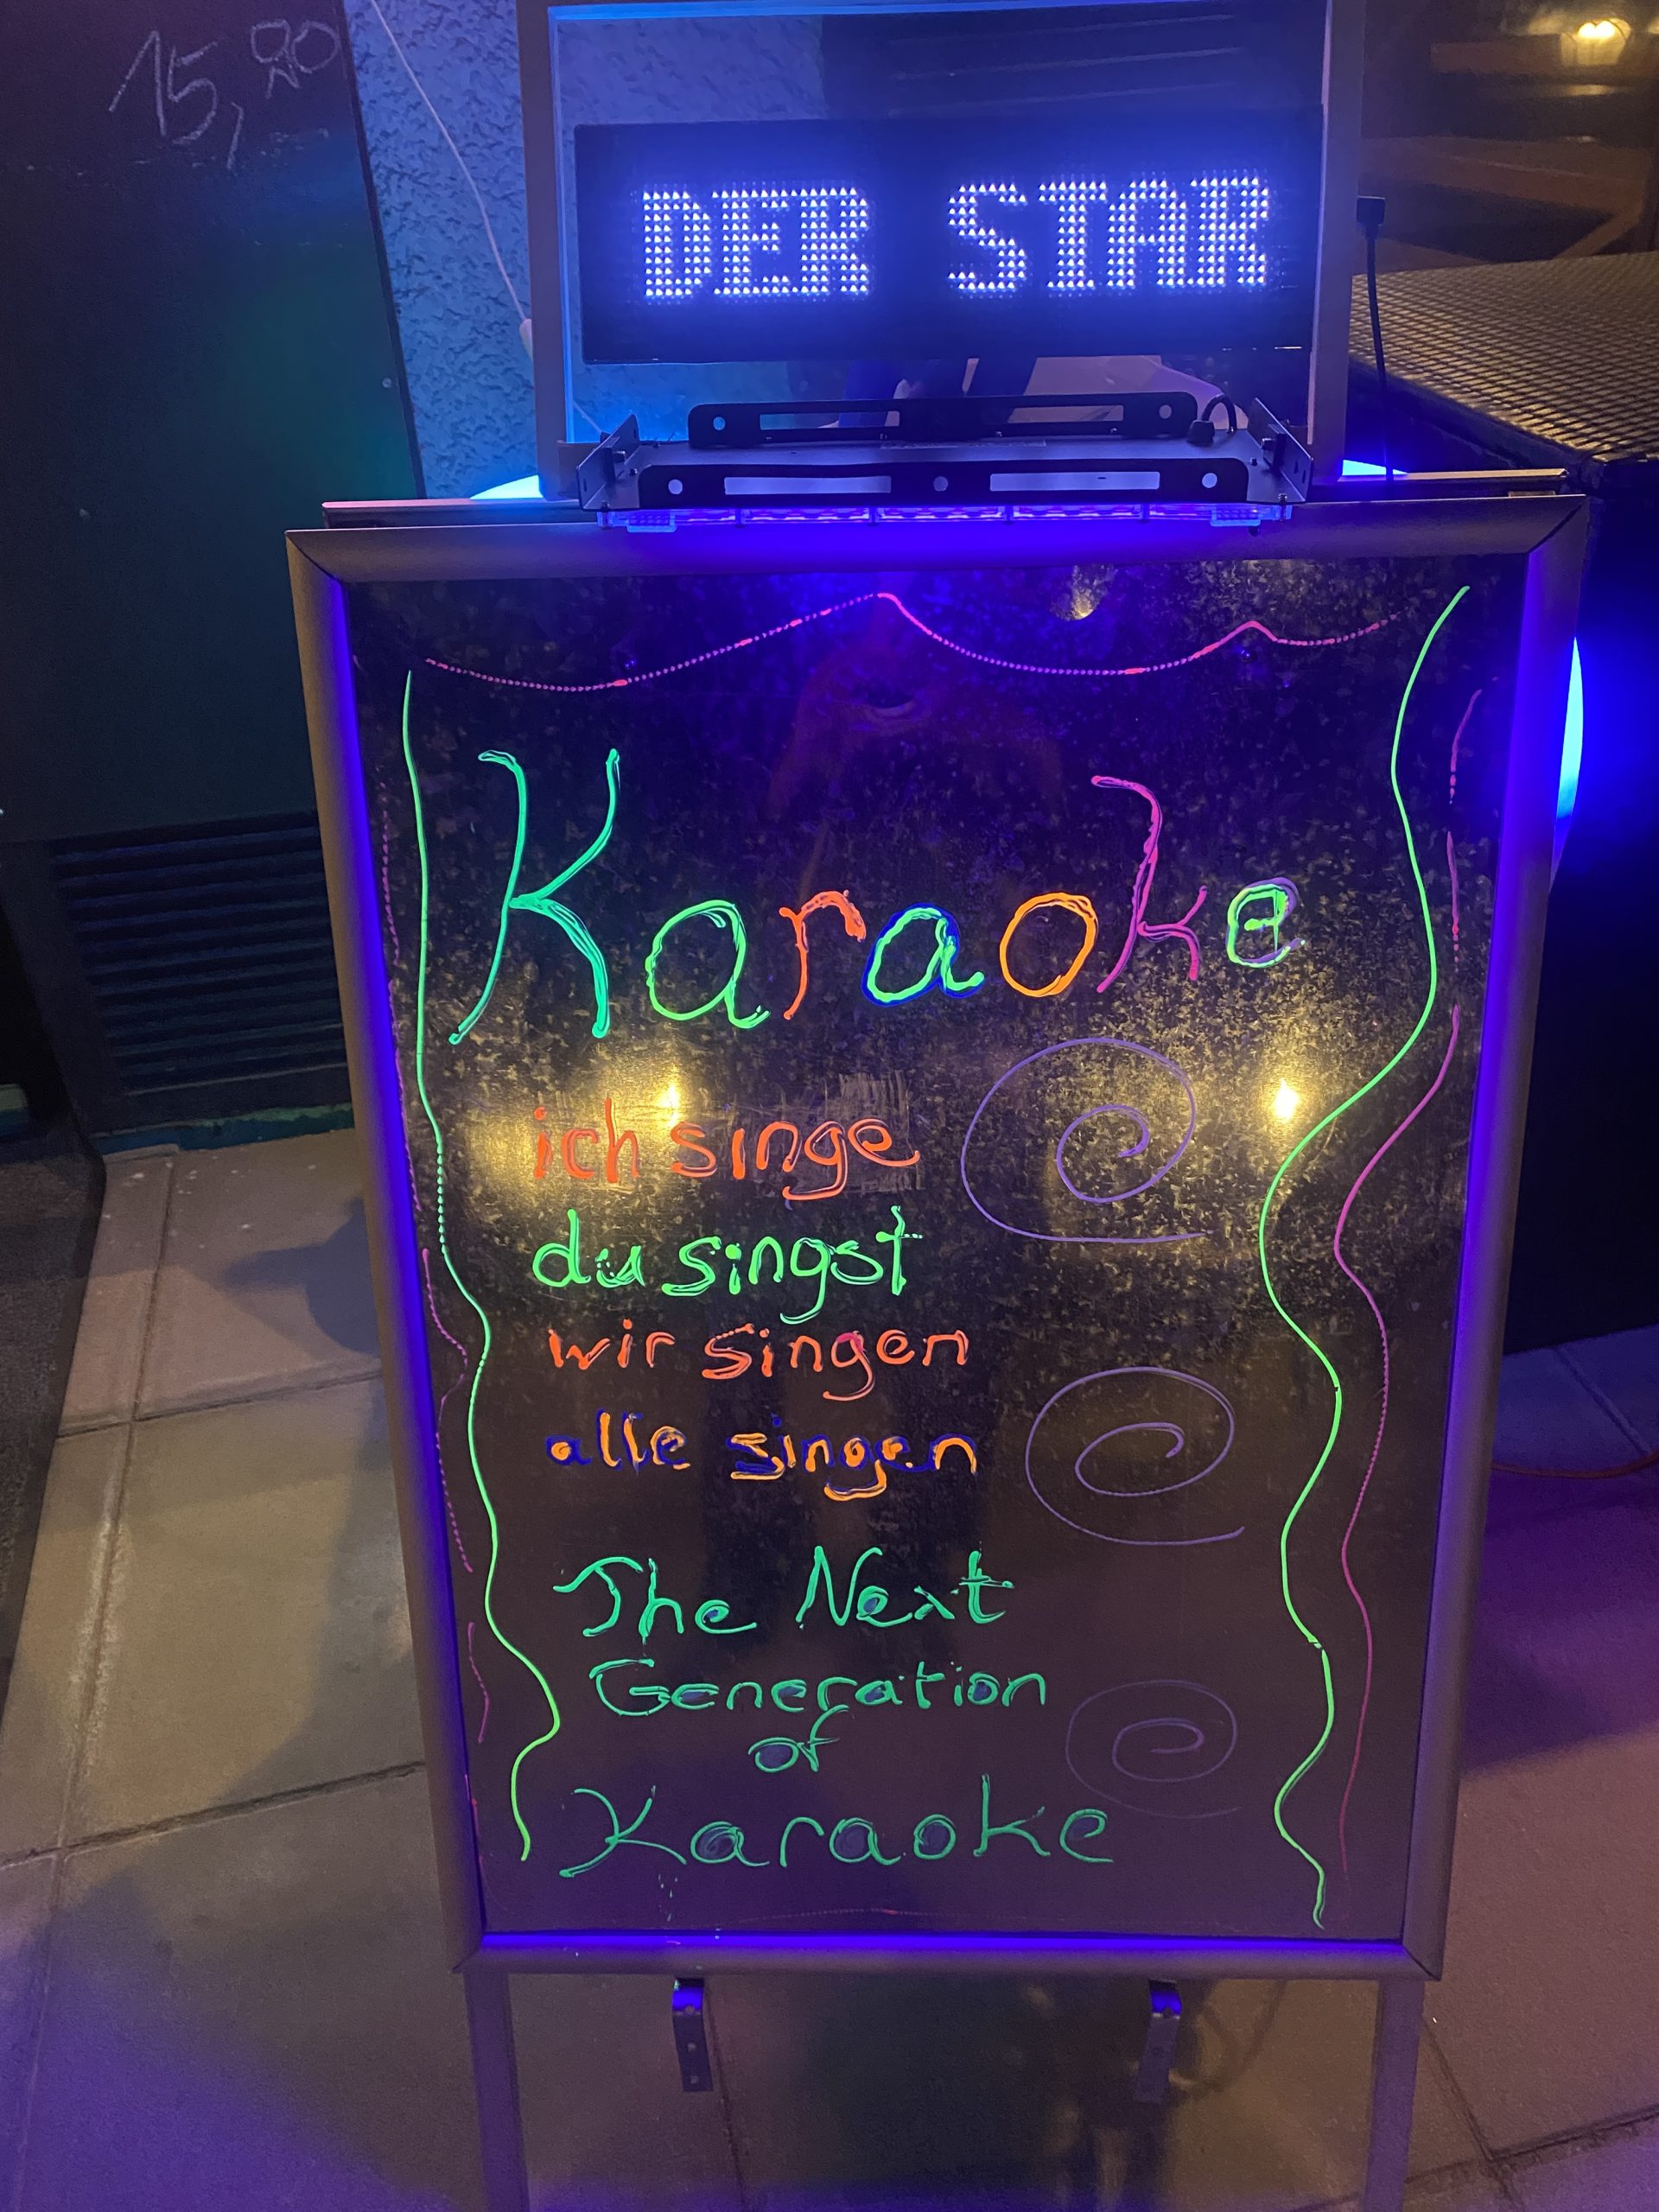 15,80
DER STAR
Karaoke
ich singe
du singst
wir singen
alle singen
The Next
Generation
of
Karaoke